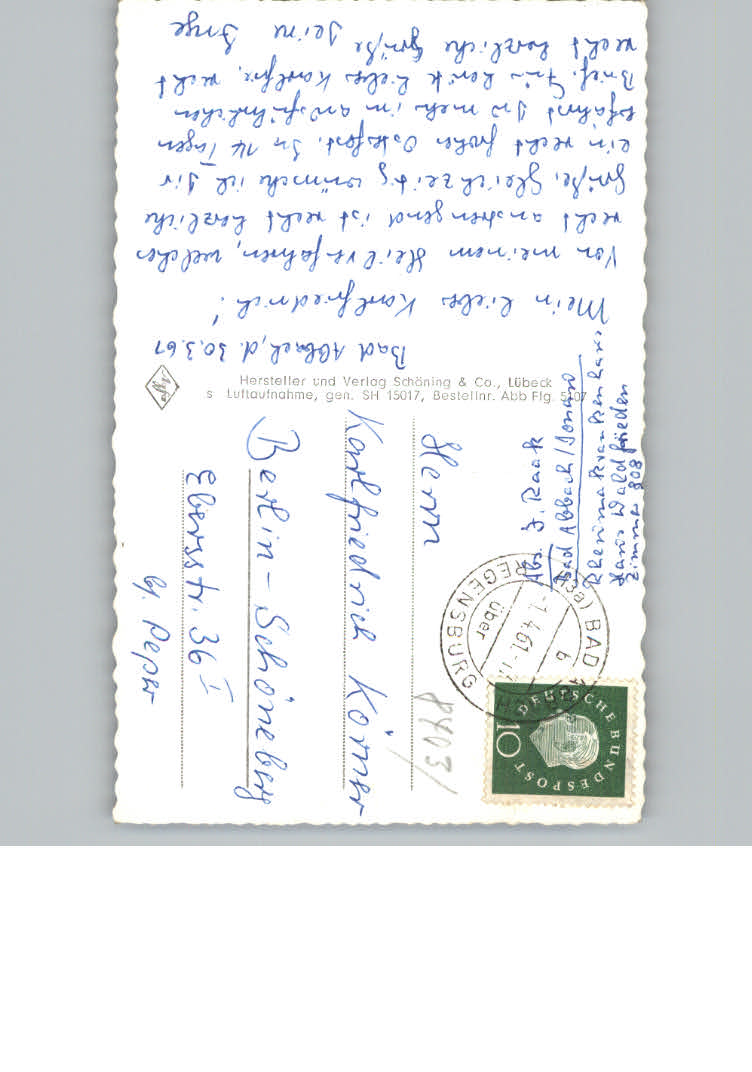 Bad Abbach, d. 30.3.61
Mein liebes Karlfriedrich!
Von meinem Heilverfahren, welches
recht anstrengend ist recht herzliche
Grüße. Gleichzeitig wünsche ich Dir
ein recht frohes Osterfest. In 14 Tagen
erfährst Du mehr im ausführlichen
Brief. Für heute liebes Karlfr. recht
recht herzliche Grüße Deine Inge
Hersteller und Verlag Schöning & Co., Lübeck
s Luftaufnahme, gen. SH 15017, Bestellnr. Abb Flg. 5107
Abs. J. Raak
Bad Abbach/Donau
Rheumakrankenhaus
Haus Waldfrieden
Zimmer 808
BAD
über
REGENSBURG
-1.4.61.-
b
DEUTSCHE BUNDESPOST
10
Herrn
Karlfriedrich Körner
Berlin-Schöneberg
Ebersstr. 36 I
bj. Peper